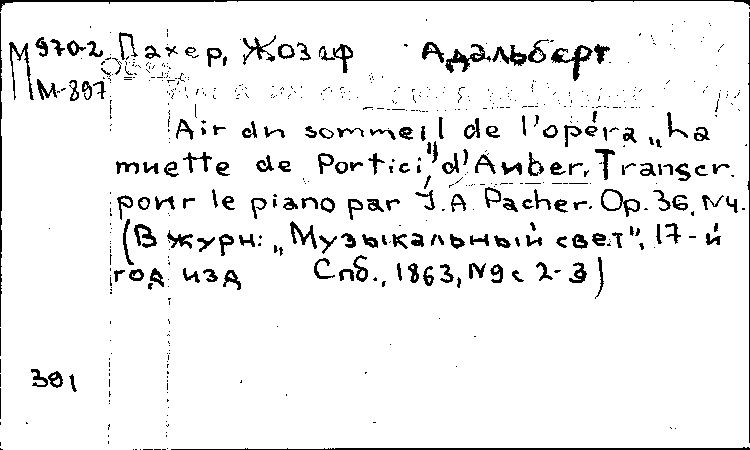 М 970-2 Пахер, Жозеф Адальберт
М-897
Air du sommeil de l'opéra „La
muette de Portici" d'Auber. Transcr.
pour le piano par J.A. Pacher. Op. 36, N4.
(В журн: „Музыкальный свет", 17-й
год изд Спб., 1863, N9 с 2-3)
391